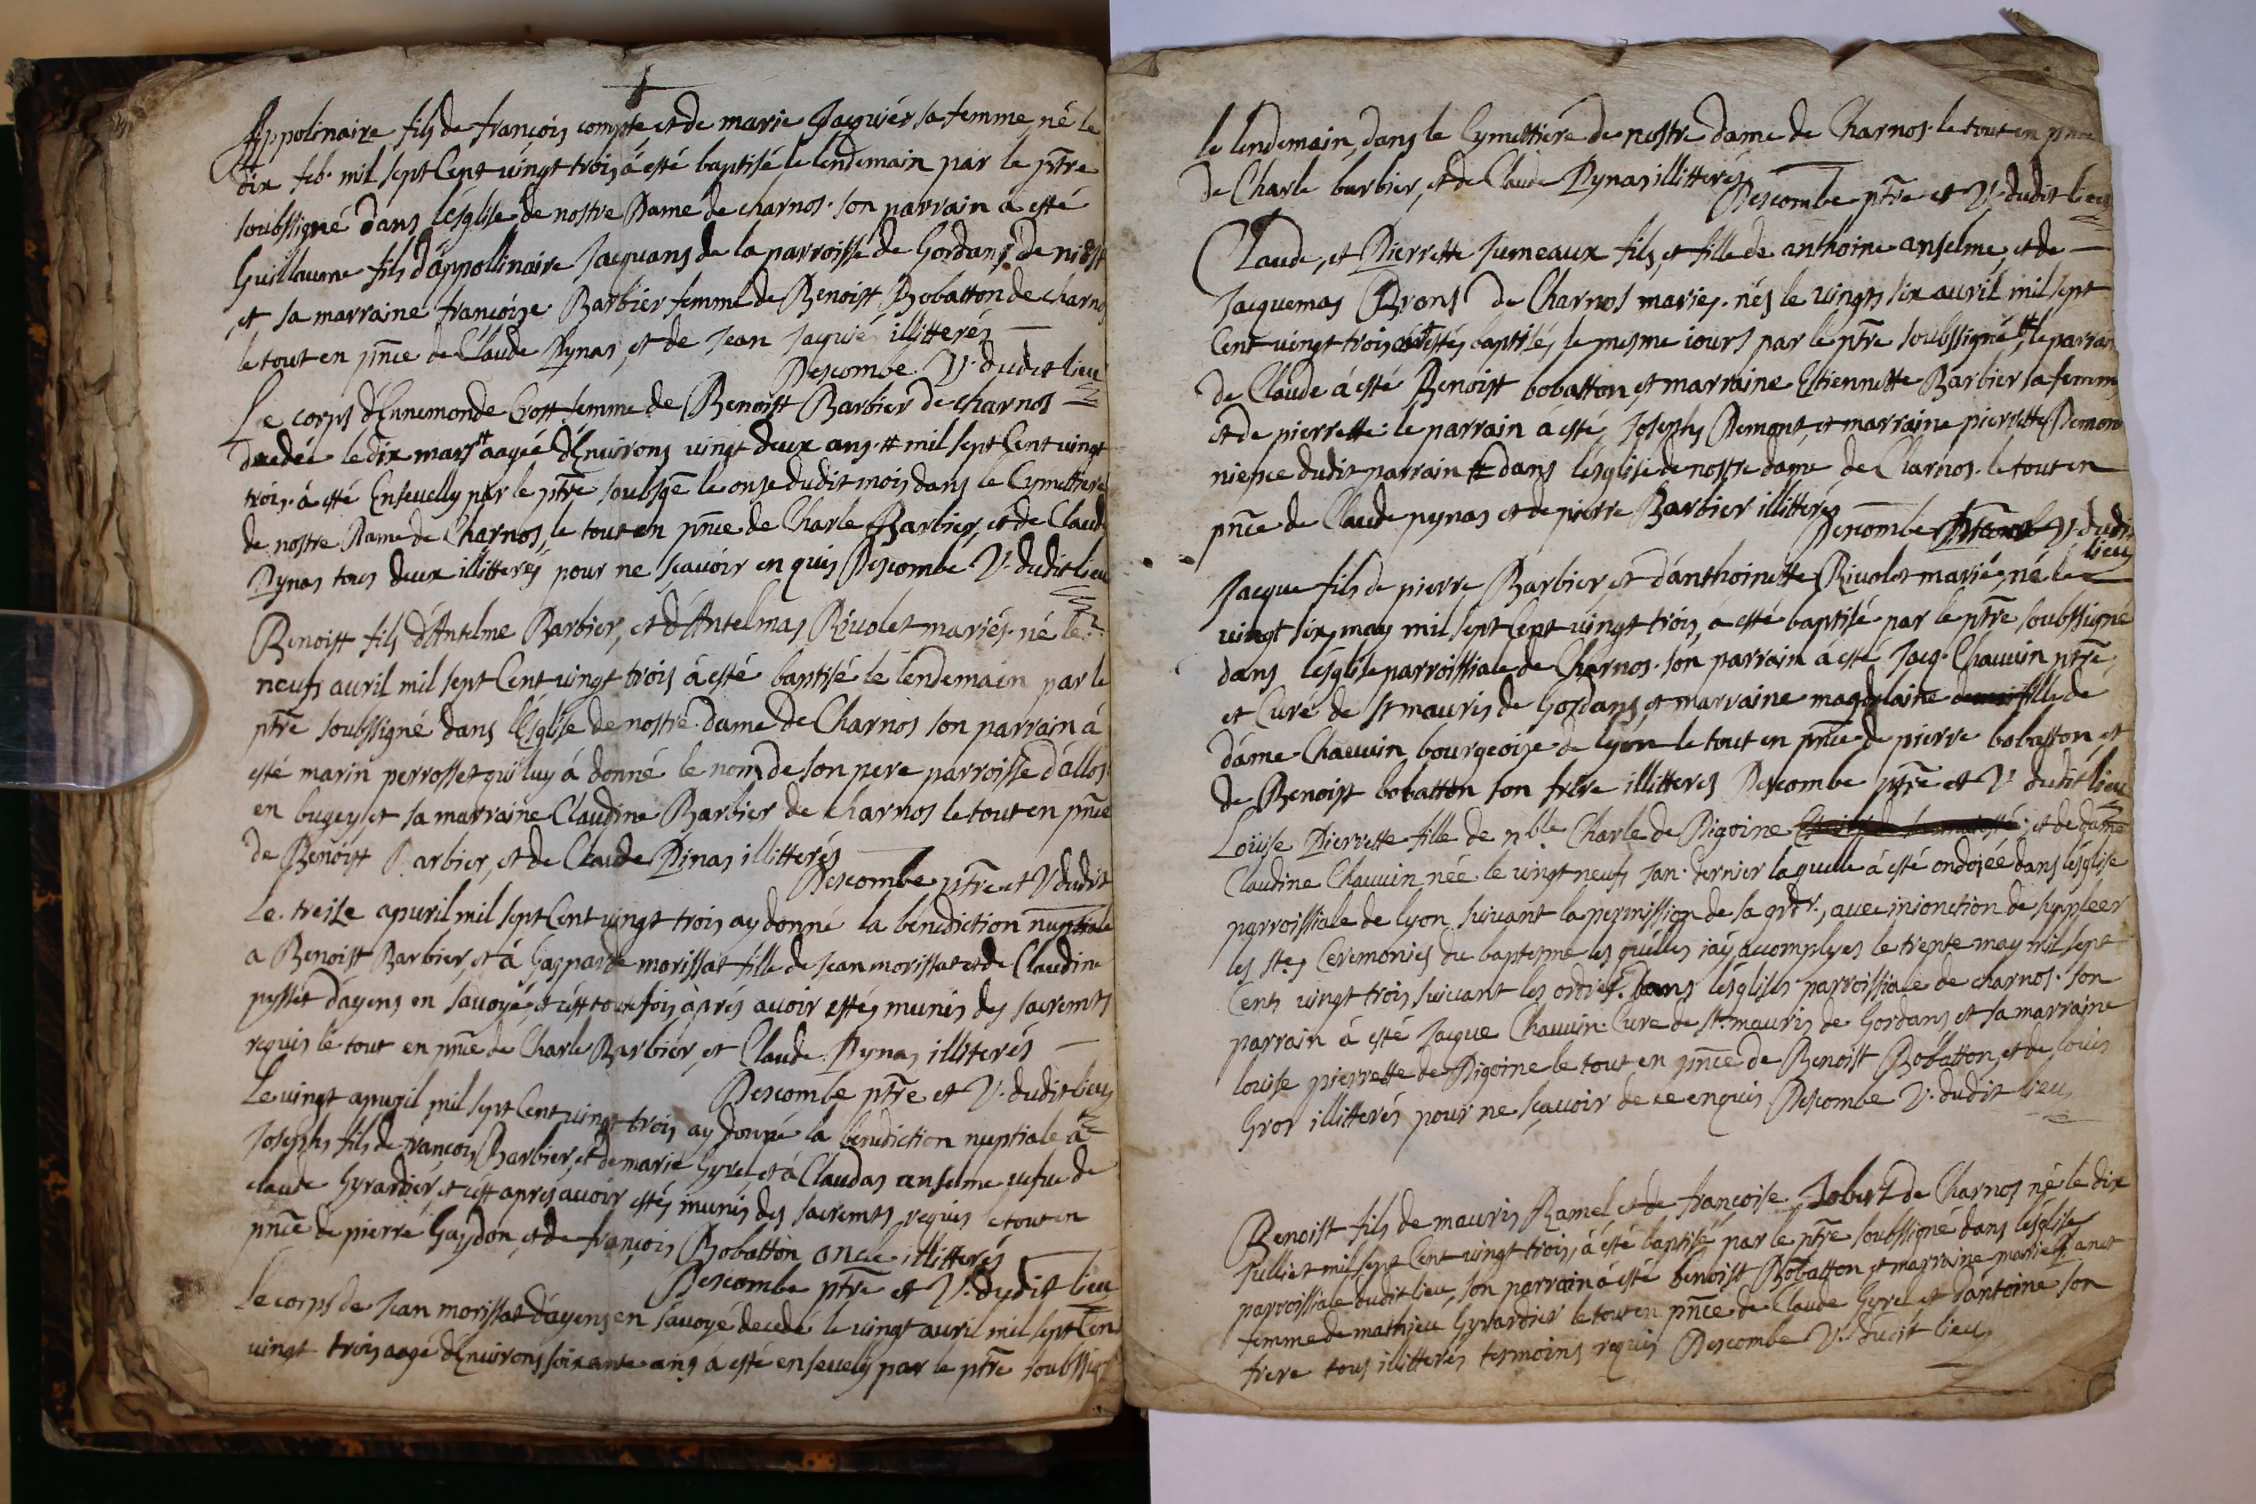 Appolinaire fils de françois compte et de marie Jacquiér sa femme, né le
dix feb. mil sept Cent vingt trois á esté baptisé le lendemain par le ptre
soubssigné dans l'ésglise de nostre Dame de charnos. son parrain a esté
Guillaume fils d'appollinaire Jacquans de la parroisse de Gordans de
et sa marraine françoise Barbier femme de Benoist Bobatton de charnos
le tout en pnce de Claude Pynas, et de Jean Jaquiér illitterés
Descombe. V. dudit lieu
Le corps d'Ennemonde Crost femme de Benoist Barbier de charnos
decedée le dix mars # aagée d'Environs vingt deux ans. # mil sept Cent vingt
trois. á esté Ensevelly par le ptre soubsgé le onze dudit mois dans le Cymettiere
de nostre Dame de Charnos, le tout en pnce de Charle Barbier, et de Claude
Pynas tous deux illitterés pour ne scavoir enquis Descombe V. dudit lieu
Benoist fils d'Antelme Barbier, et d'Antelmas Rivolet mariés. né le
neufs avril mil sept Cent vingt trois á esté baptisé le lendemain par le
ptre soubssigné dans l'Esglise de nostre dame de Charnos son parrain á
esté marin perrosset qui luy á donné le nom de son pere parroisse d'allos
en bugey, et sa marraine Claudine Barbier de Charnos le tout en pnce
de Benoist Barbier, et de Claude Pinas illitterés
Descombe ptre et V dudit
Le treise apvril mil sept Cent vingt trois ay donné la benediction nuptiale
a Benoist Barbier, et á Gasparde morissat fille de Jean morissat et de Claudine
pysset d'ayens en savoyé, et c'est toutefois áprés avoir estés munis des sacremts
requis le tout en pnce de Charle Barbier, et Claude Pynas illiterés
Descombe ptre et V. dudit lieu
Le vingt apvril mil sept Cent vingt trois ay donné la benediction nuptiale á
Josephs fils de françois Barbier, et de marie Gyre, et á Claudas anselme vefve de
claude Gyrardiér, et c'est apres avoir estés munis des sacremts requis le tout en
pnce de pierre Gaydon, et de françois Bobatton oncle illitterés
Descombe ptre et V. dudit lieu
Le corps de Jean morissat d'ayens en savoyé decedé le vingt avril mil sept Cen
vingt trois aagé d'Environs soixante ans á esté ensevely par le ptre soubssigé
le lendemain, dans le Cymettiere de nostre dame de Charnos. le tout en pnce
de Charle barbier, et de Claude Pynas illitterés
Descombe ptre et V. dudit lieu
Claude, et Pierrette Jumeaux fils, et fille de anthoine anselme, et de
Jacquemas Brons de Charnos mariés. nés le vingts six avril mil sept
Cent vingt trois ont estés baptisés le mesme iours par le ptre soubssigné # le parrain
de Claude á esté Benoist bobatton et marraine Estiennette Barbier sa femme
et de pierrette: le parrain á esté Josephs Demont et marraine pierrette Demon
niepce dudit parrain # dans l'ésglise de nostre dame de Charnos. le tout en
pnce de Claude pynas et de pierre Barbier illitteres
Descombe V. dudit
lieu
Jacque fils de pierre Barbier et d'anthoinette Rivolet mariés né le
vingt six may mil sept Cent vingt trois, a esté baptisé par le ptre soubssigné
dans l'ésglise parroissiale de Charnos. son parrain á esté Jacq. Chauvin ptre,
et Curé de st mauris de Gordans et marraine magdelaine fille de
dáme Chauvin bourgeoise de lyon le tout en pnce de pierre bobatton, et
de Benoist bobatton son frere illitteres Descombe ptre et V dudit lieu
Louise Pierrette fille de nble Charle de Digoine et de dame
Claudine Chauvin née le vingt neufs Jan. dernier laquelle á esté ondoiée dans l'ésglise
parroissiale de lyon suivant la permission de sa grdr., avec inionction de suppleer
les stes Ceremonies du baptesme lesquelles iay accomplyes le trente may mil sept
Cents vingt trois suivant les ordres. Dans l'ésglise parroissiale de charnos. son
parrain á esté Jacque Chauvin Curé de st. mauris de Gordans et sa marraine
louise pierrette de Digoine le tout en pnce de Benoist Bobatton, et de louis
Gros illitterés pour ne sçavoir de ce enquis Descombe V. dudit lieu
Benoist fils de mauris Ramel et de françoise Jobert de Charnos né le dix
Julliet mil sept Cent vingt trois, á esté baptisé par le ptre soubssigné dans l'ésglise
parroissiale dudit lieu, son parrain á esté benoist Bobatton et marraine marie
femme de mathieu Gyrardier le tout en pnce de Claude Gyre et d'antoine son
frere tous illitterés tesmoins requis Descombe V. dudit lieu